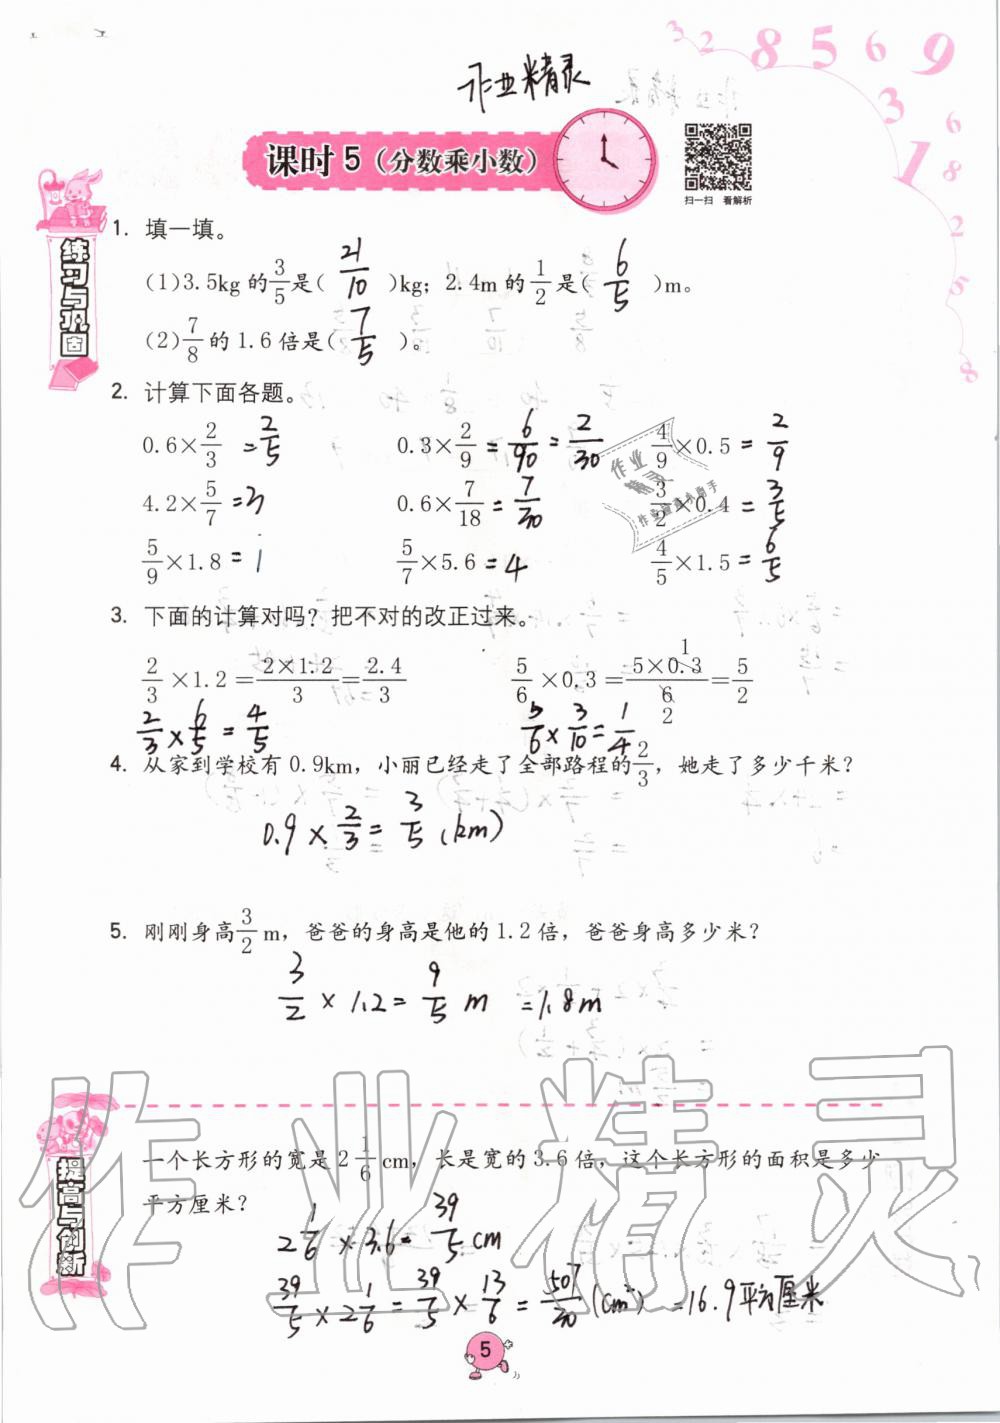 3 2 8 5 6 9
作业精灵
3
6
1
8
2
5
8
课时5(分数乘小数)
扫一扫 看解析
练习与巩固
1. 填一填。
(1)3.5kg 的 3/5 是( 21/10 )kg；2.4m 的 1/2 是( 6/5 )m。
(2) 7/8 的 1.6 倍是( 7/5 )。
2. 计算下面各题。
0.6× 2/3 = 2/5 0.3× 2/9 = 6/90 = 2/30 4/9 ×0.5 = 2/9
4.2× 5/7 =3 0.6× 7/18 = 7/30 3/2 ×0.4 = 3/5
5/9 ×1.8 = 1 5/7 ×5.6 = 4 4/5 ×1.5 = 6/5
作业
精灵
3. 下面的计算对吗？把不对的改正过来。
2/3 ×1.2= 2×1.2/3 = 2.4/3 5/6 ×0.3= 5×0.3/6 = 5/2
1
2
2/3 × 6/5 = 4/5 5/6 × 3/10 = 1/4
4. 从家到学校有 0.9km，小丽已经走了全部路程的 2/3，她走了多少千米？
0.9 × 2/3 = 3/5 (km)
5. 刚刚身高 3/2 m，爸爸的身高是他的 1.2 倍，爸爸身高多少米？
3/2 × 1.2 = 9/5 m =1.8m
作业精灵
提高与创新
一个长方形的宽是 2 1/6 cm，长是宽的 3.6 倍，这个长方形的面积是多少
平方厘米？
2 1/6 × 3.6 = 39/5 cm
39/5 × 2 1/6 = 39/5 × 13/6 = 507/30 (cm²) =16.9平方厘米
5